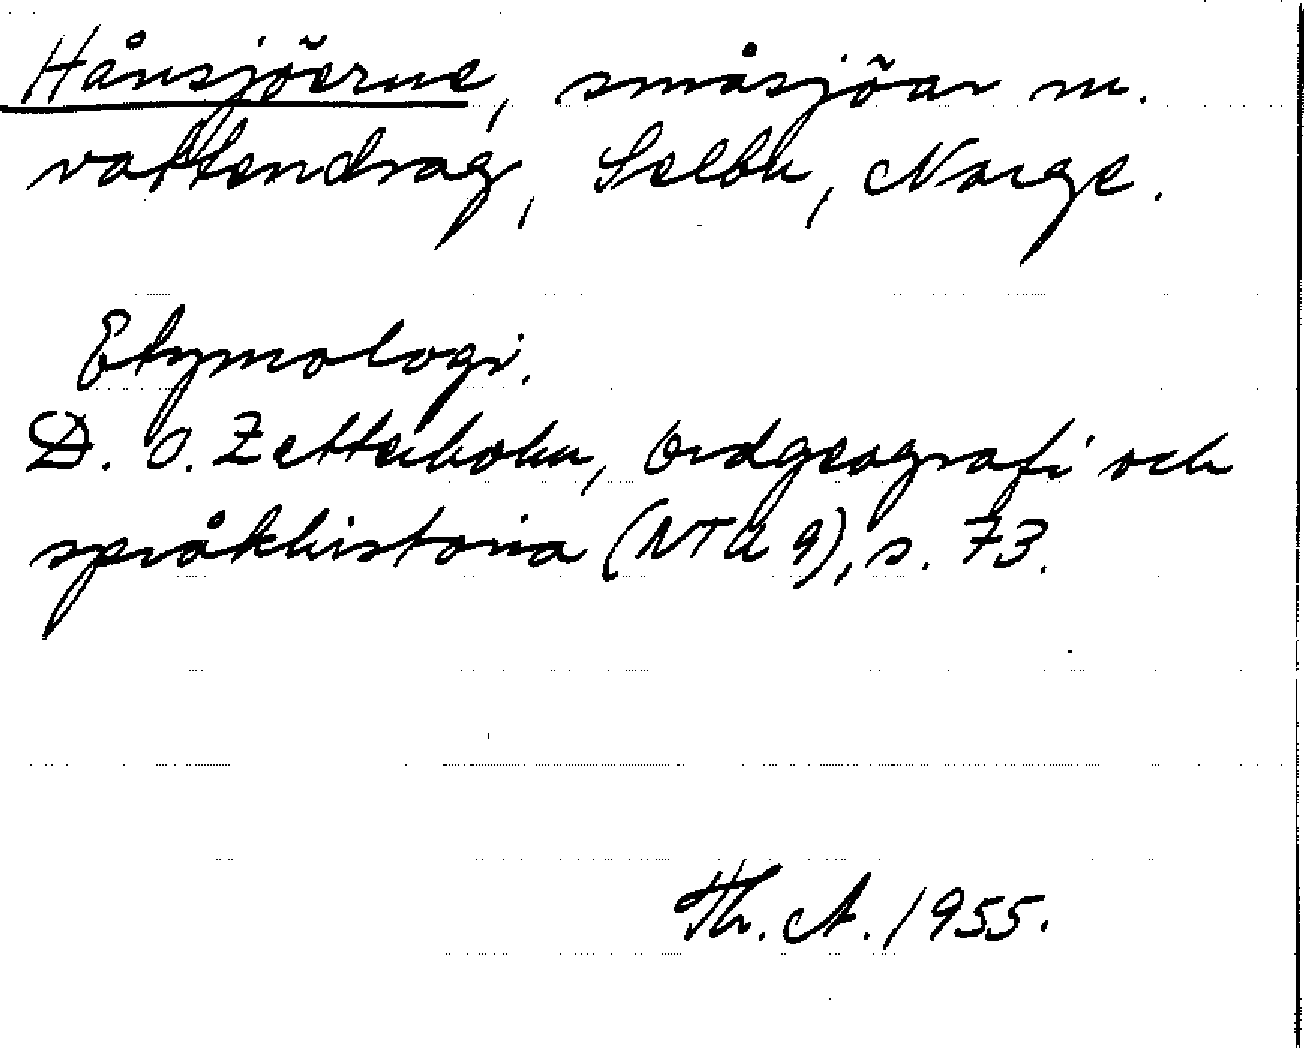 Hånsjöerne, småsjöar m.
vattendrag, Selbu, Norge.
Etymologi.
D. O. Zetterholm, Ordgeografi och
språkhistoria (NTU 9), s. 73.
Th. A. 1955.